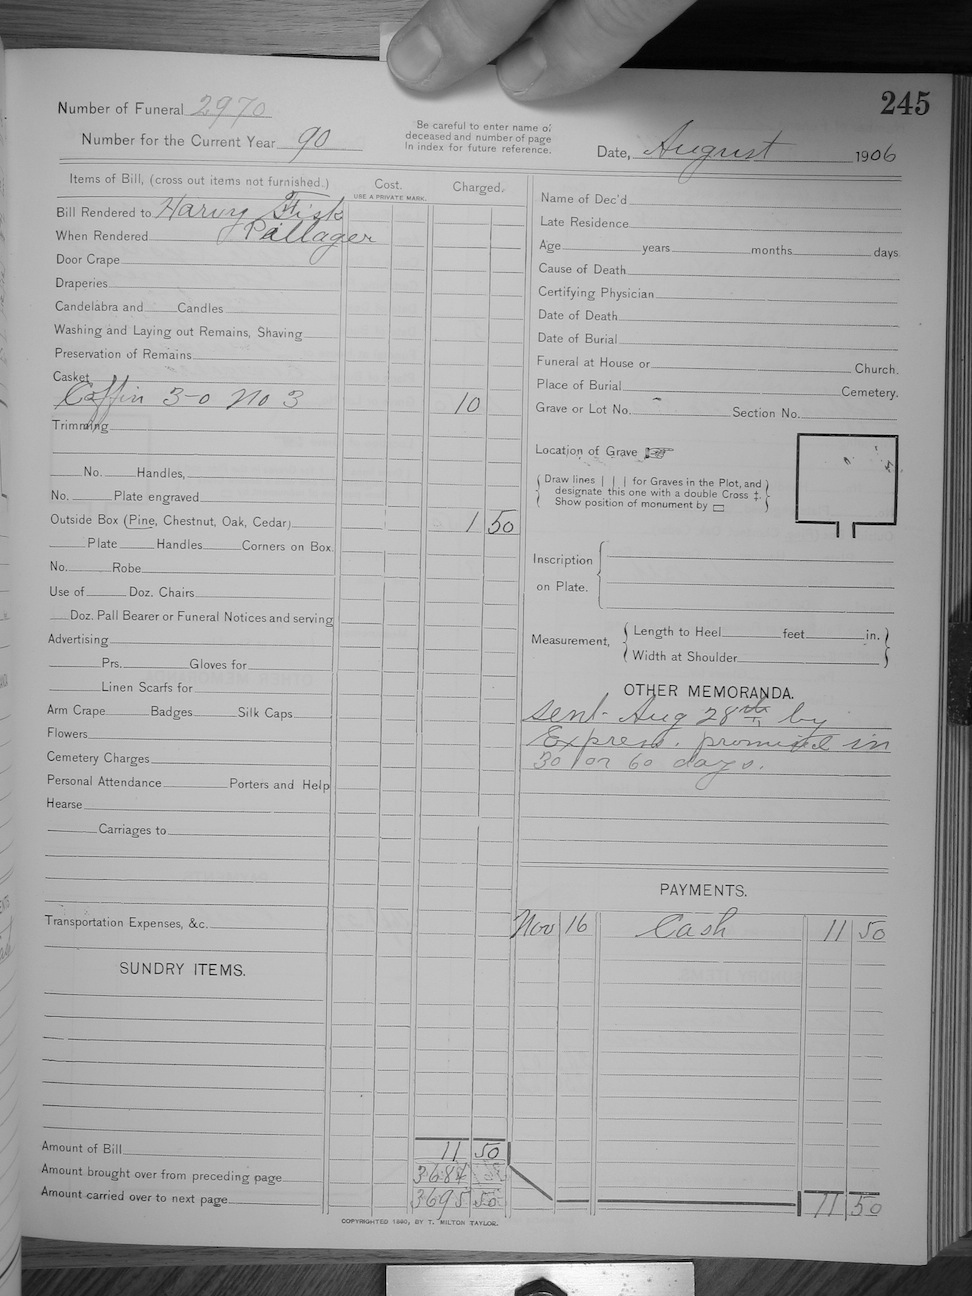 245
Number of Funeral 2970
Number for the Current Year 90
Be careful to enter name of
deceased and number of page
In index for future reference.
Date, August 1906
Items of Bill, (cross out items not furnished.)
Cost.
USE A PRIVATE MARK.
Charged.
Bill Rendered to Harvy Fisk
When Rendered Pillager
Door Crape
Draperies
Candelabra and Candles
Washing and Laying out Remains, Shaving
Preservation of Remains
Casket
Coffin 3-0 No 3 10
Trimming
No. Handles,
No. Plate engraved
Outside Box (Pine, Chestnut, Oak, Cedar) 1 50
Plate Handles Corners on Box.
No. Robe
Use of Doz. Chairs
Doz. Pall Bearer or Funeral Notices and serving
Advertising
Prs. Gloves for
Linen Scarfs for
Arm Crape Badges Silk Caps
Flowers
Cemetery Charges
Personal Attendance Porters and Help
Hearse
Carriages to
Transportation Expenses, &c.
SUNDRY ITEMS.
Amount of Bill 11 50
Amount brought over from preceding page 3684
Amount carried over to next page 3695 50
Name of Dec'd
Late Residence
Age years months days
Cause of Death
Certifying Physician
Date of Death
Date of Burial
Funeral at House or Church.
Place of Burial Cemetery.
Grave or Lot No. Section No.
Location of Grave
Draw lines | | | for Graves in the Plot, and
designate this one with a double Cross ‡.
Show position of monument by □
Inscription
on Plate.
Measurement,
Length to Heel feet in.
Width at Shoulder
OTHER MEMORANDA.
sent Aug 28th by
Express. promised in
30 or 60 days.
PAYMENTS.
Nov 16 Cash 11 50
11 50
COPYRIGHTED 1890, BY T. MILTON TAYLOR.